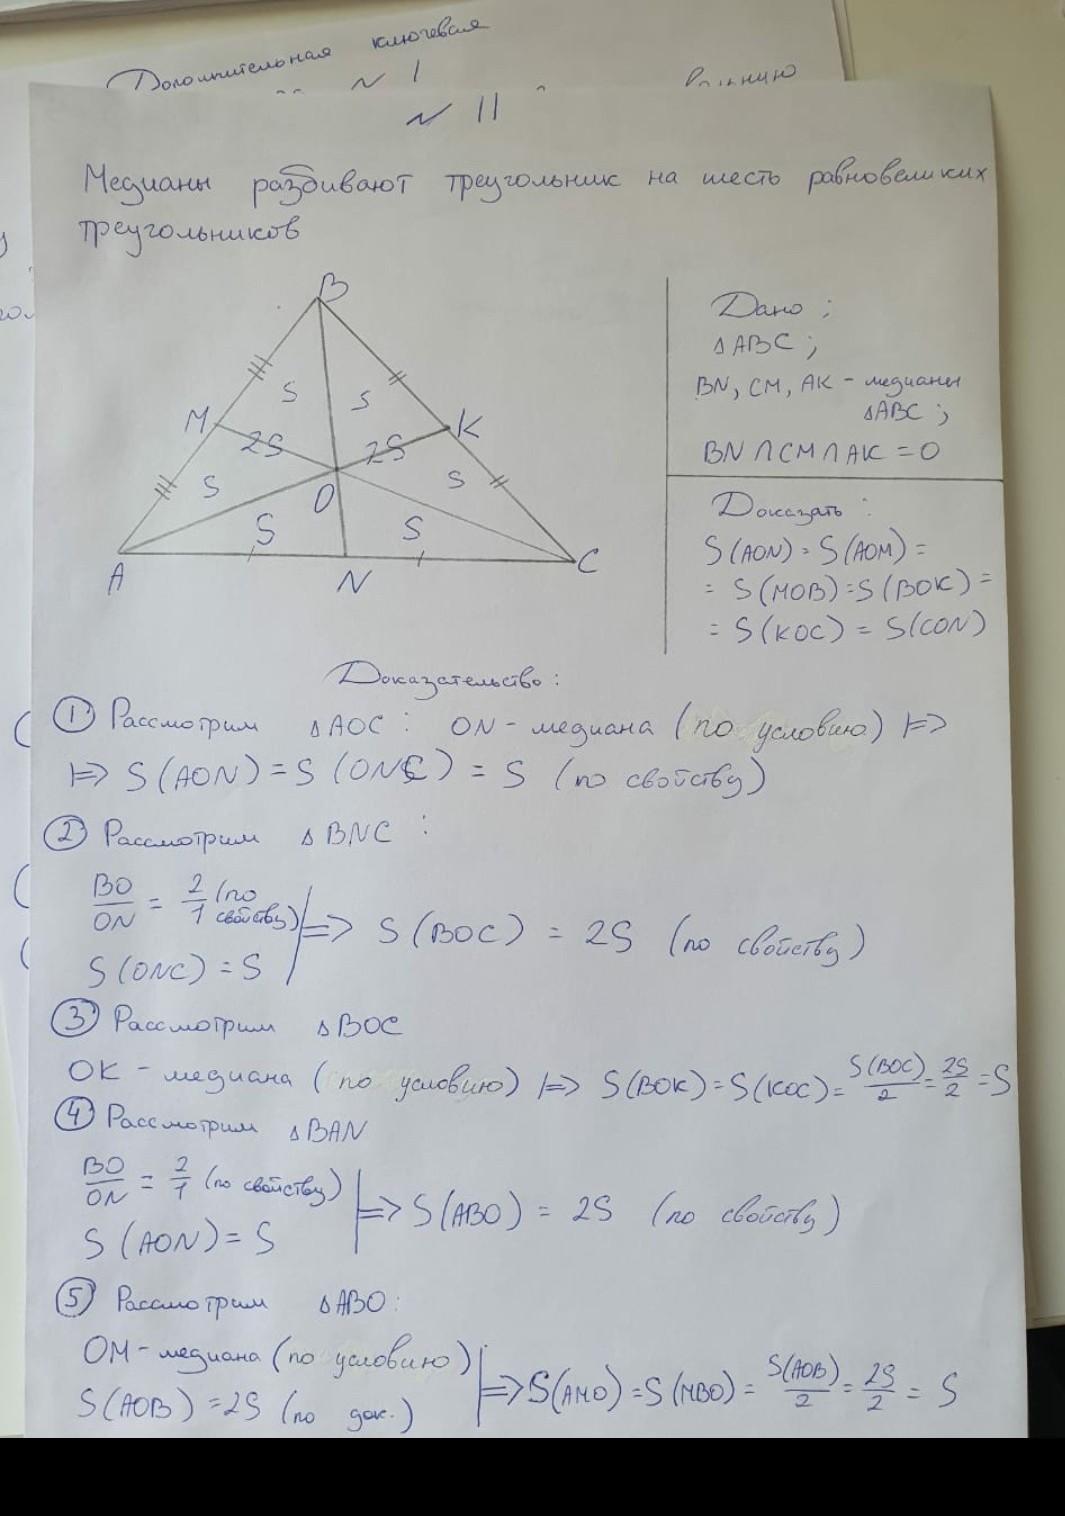 Дополнительная ключевая
N 1
N 11
Медианы разбивают треугольник на шесть равновеликих
треугольников
B
S
S
M
K
2S
2S
S
S
O
S
S
A
N
C
Дано :
△ABC ;
BN, CM, AK - медианы
△ABC ;
BN ∩ CM ∩ AK = O
Доказать :
S(AON) = S(AOM) =
= S(MOB) = S(BOK) =
= S(KOC) = S(CON)
Доказательство :
① Рассмотрим △AOC : ON - медиана (по условию) |=>
|=> S(AON) = S(ONC) = S (по свойству)
② Рассмотрим △BNC :
BO/ON = 2/1 (по свойству) |=> S(BOC) = 2S (по свойству)
S(ONC) = S
③ Рассмотрим △BOC
OK - медиана (по условию) |=> S(BOK) = S(KOC) = S(BOC)/2 = 2S/2 = S
④ Рассмотрим △BAN
BO/ON = 2/1 (по свойству) |=> S(ABO) = 2S (по свойству)
S(AON) = S
⑤ Рассмотрим △ABO :
OM - медиана (по условию) |=> S(AMO) = S(MBO) = S(AOB)/2 = 2S/2 = S
S(AOB) = 2S (по док.)